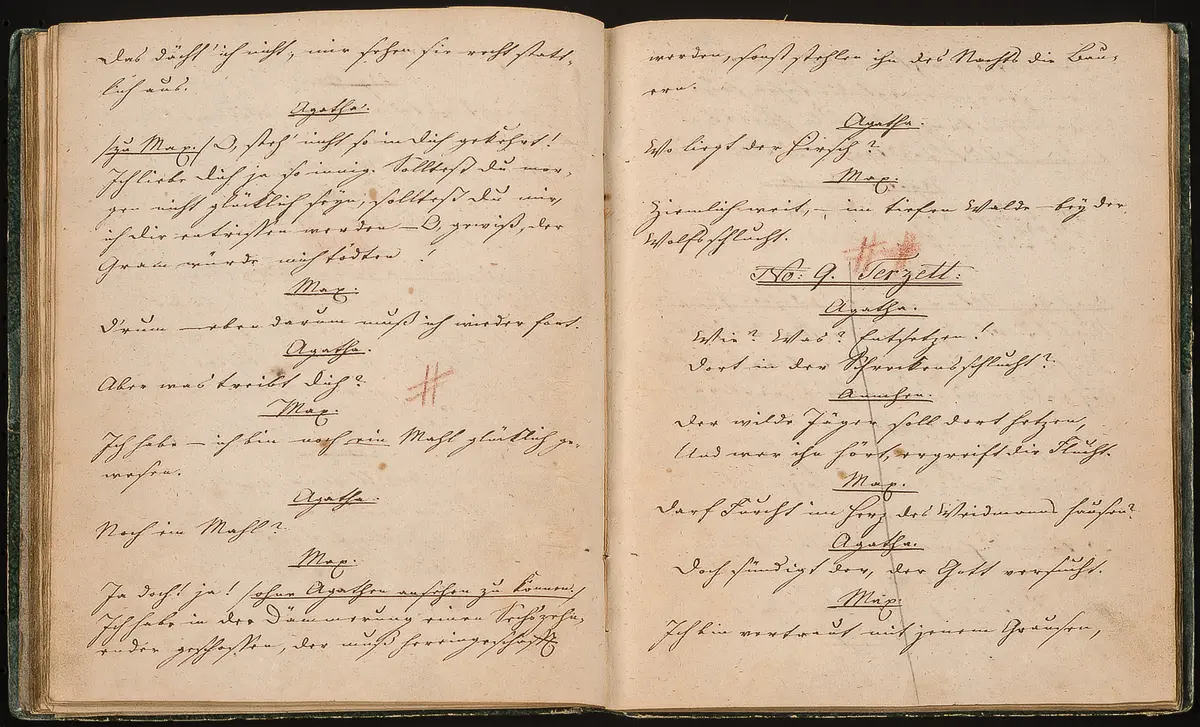 Das dächt' ich nicht, mir sehen sie recht statt-
lich aus.
Agatha.
/zu Max./ O, steh' nicht so in dich gekehrt!
Ich liebe dich ja so innig. Solltest du mor-
gen nicht glücklich seyn, solltest du mir,
ich dir entrissen werden – O, gewiß, der
Gram würde mich tödten!
Max.
D'rum – eben darum muß ich wieder fort.
Agatha.
Aber was treibt dich?
#
Max.
Ich habe – ich bin noch ein Mahl glücklich ge-
wesen.
Agatha.
Noch ein Mahl?
Max.
Ja doch! ja! /ohne Agathen ansehen zu können./
Ich habe in der Dämmerung einen Sechszehn-
ender geschossen, der muß hereingeschafft
werden, sonst stehlen ihn des Nachts die Bau-
ern.
Agatha.
Wo liegt der Hirsch?
Max.
Ziemlich weit, – im tiefen Walde – bey der
Wolfsschlucht.
# #
No: 9. Terzett.
Agatha.
Wie? Was? Entsetzen!
Dort in der Schreckensschlucht?
Annchen.
Der wilde Jäger soll dort hetzen,
Und wer ihn hört, ergreift die Flucht.
Max.
Darf Furcht im Herz des Weidmanns hausen?
Agatha.
Doch sündigt der, der Gott versucht.
Max.
Ich bin vertraut mit jenem Grausen,